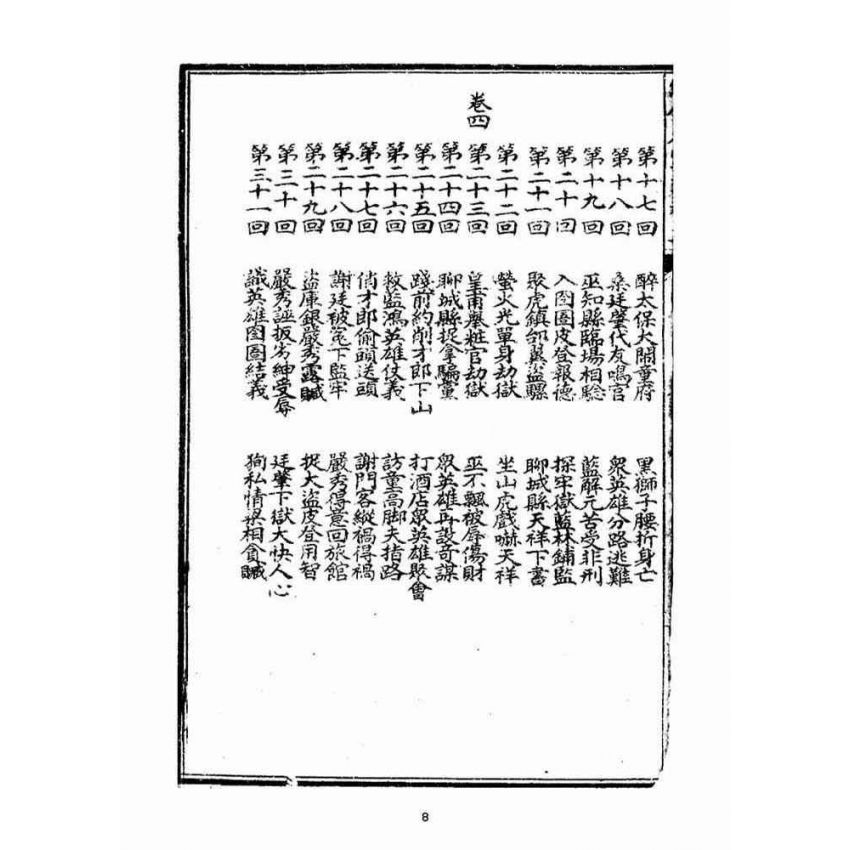 第十七回 醉太保大鬧童府 黑獅子腰折身亡
第十八回 桑廷肇代友鳴官 衆英雄分路逃難
第十九回 巫知縣臨場相驗 藍解元苦受非刑
第二十回 入囹圄皮登報德 探牢獄藍林鋪監
第二十一回 聚虎鎮邰翼盜騾 聊城縣天祥下書
第二十二回 螢火光單身劫獄 坐山虎戲嚇天祥
卷四
第二十三回 皇甫舉粧官劫獄 巫不飄被辱傷財
第二十四回 聊城縣捉拿騙黨 衆英雄再設奇謀
第二十五回 踐前約削才郎下山 打酒店衆英雄敗會
第二十六回 救藍鴻英雄仗義 訪童高脚夫指路
第二十七回 俏才郎偷頭送頭 謝門客縱禍得禍
第二十八回 謝廷被冤下監牢 嚴秀得意回旅館
第二十九回 盜庫銀嚴秀露贓 捉大盜皮登用智
第三十回 嚴秀誣扳劣紳受辱 廷肇下獄大快人心
第三十一回 識英雄囹圄結義 狥私情俱相貪贓
8